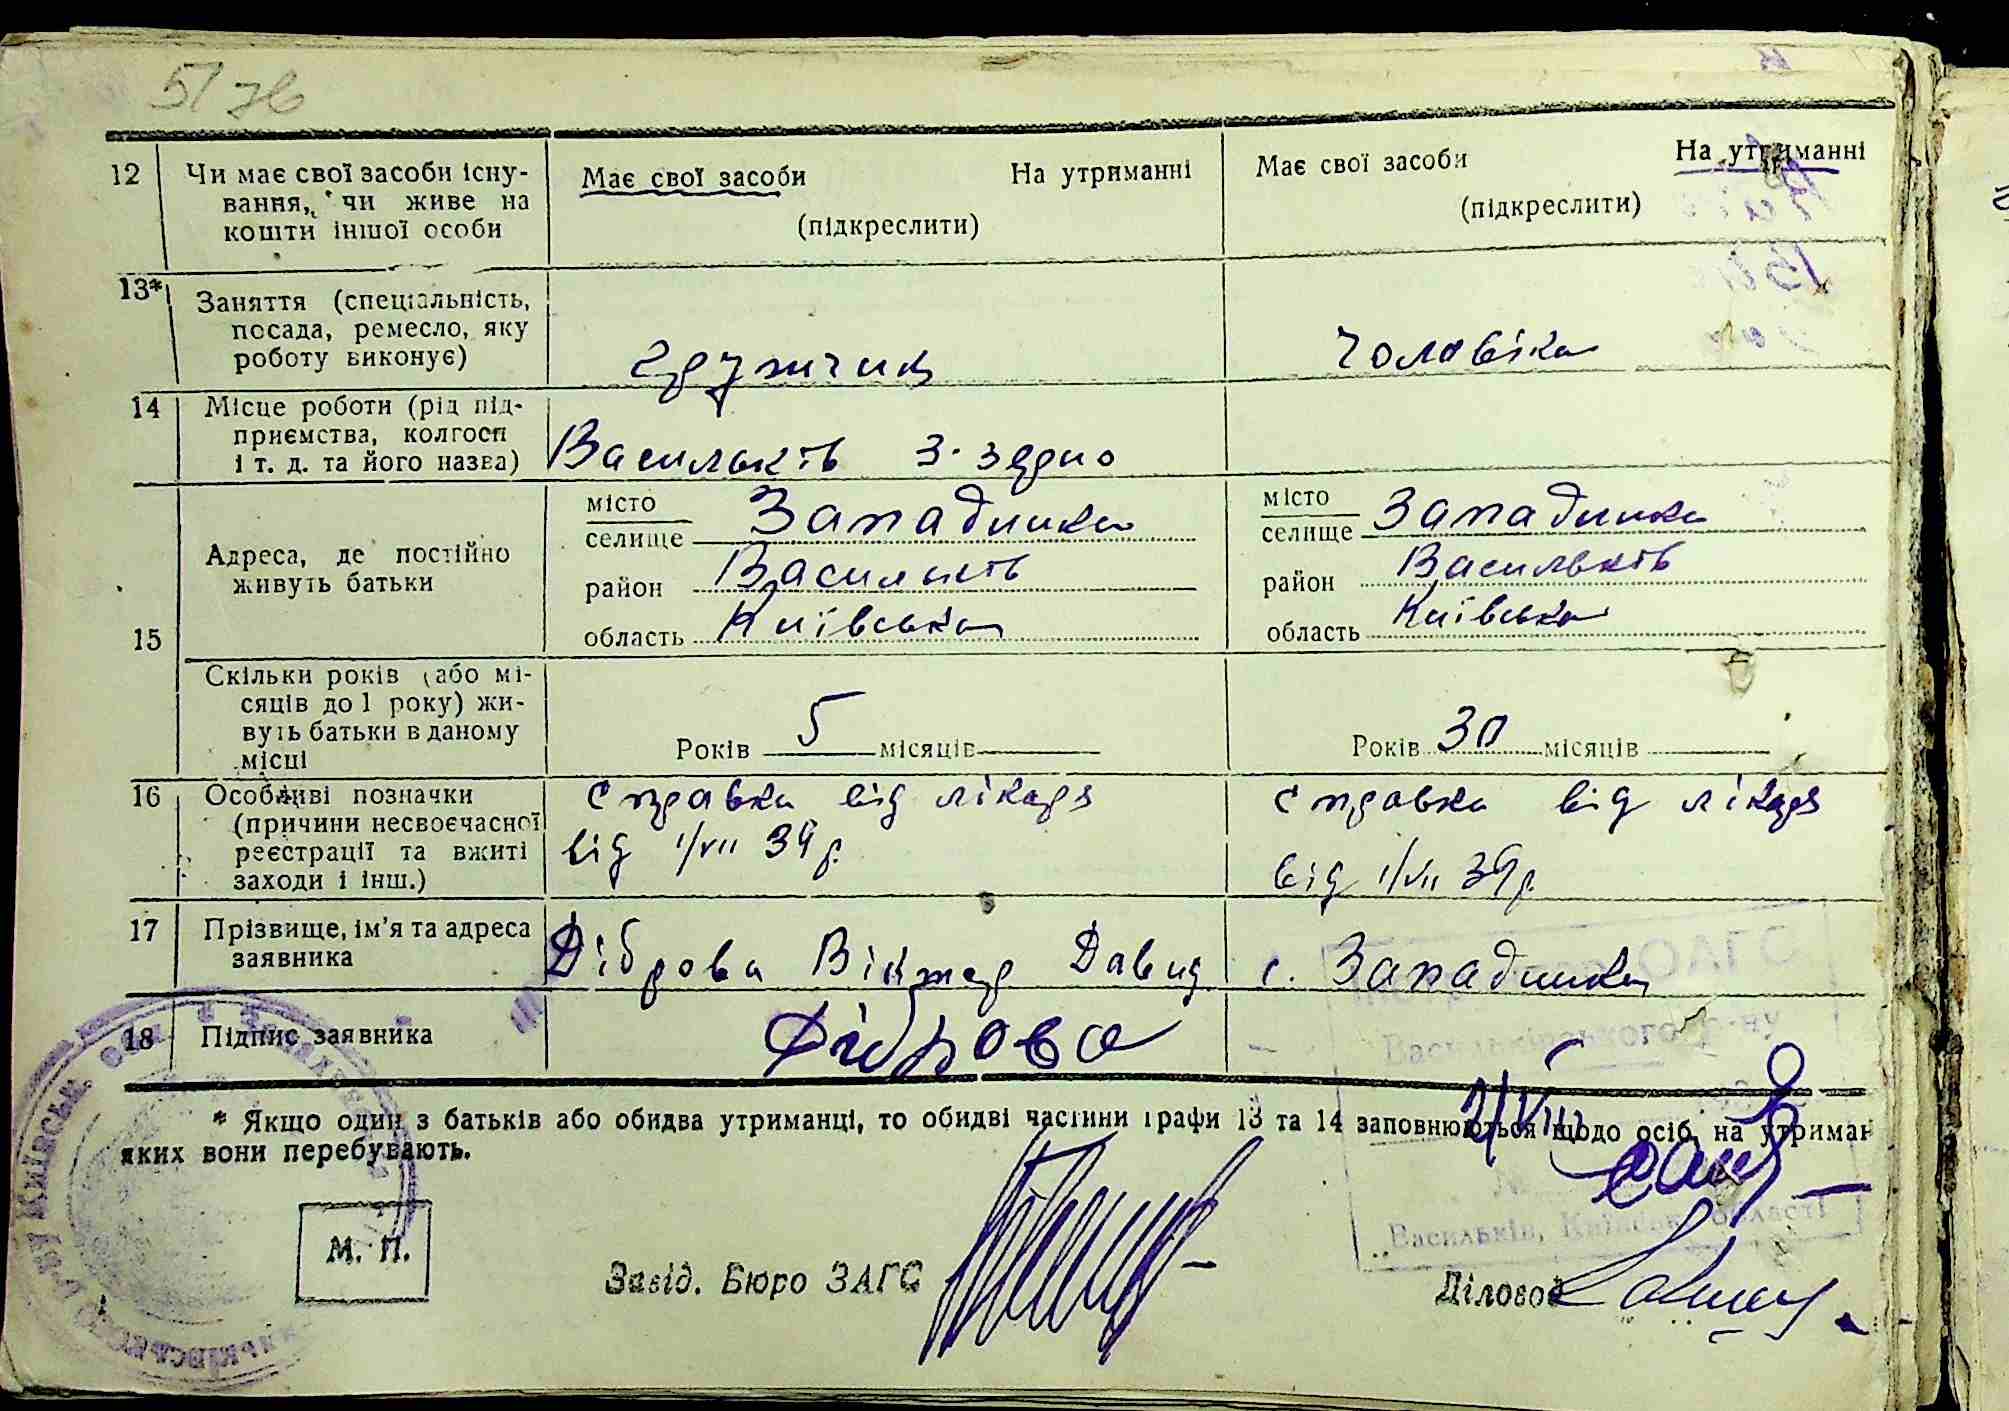 5/76
12 Чи має свої засоби існу- Має свої засоби На утриманні Має свої засоби На утриманні
вання, чи живе на (підкреслити) (підкреслити)
кошти іншої особи
13* Заняття (спеціальність,
посада, ремесло, яку
роботу виконує) грузчик чоловіка
14 Місце роботи (рід під-
приємства, колгосп
і т. д. та його назва) Васильків З-зерно
15 Адреса, де постійно
живуть батьки
місто
селище Западинка
район Васильків
область Київська
місто
селище Западинка
район Васильків
область Київська
Скільки років (або мі-
сяців до 1 року) жи-
вуть батьки в даному
місці
Років 5 місяців Років 30 місяців
16 Особливі позначки
(причини несвоєчасної
реєстрації та вжиті
заходи і інш.)
справка від лікаря
від 1/VII 39 р.
справка від лікаря
від 1/VII 39 р.
17 Прізвище, ім'я та адреса
заявника
Діброва Віктор Давид с. Западинка
18 Підпис заявника Діброва
* Якщо один з батьків або обидва утриманці, то обидві частини графи 13 та 14 заповнюються щодо осіб, на утриман
яких вони перебувають.
М. П.
Завід. Бюро ЗАГС
Діловод
ЗАГС
Васильківського р-ну
Васильків, Київської області